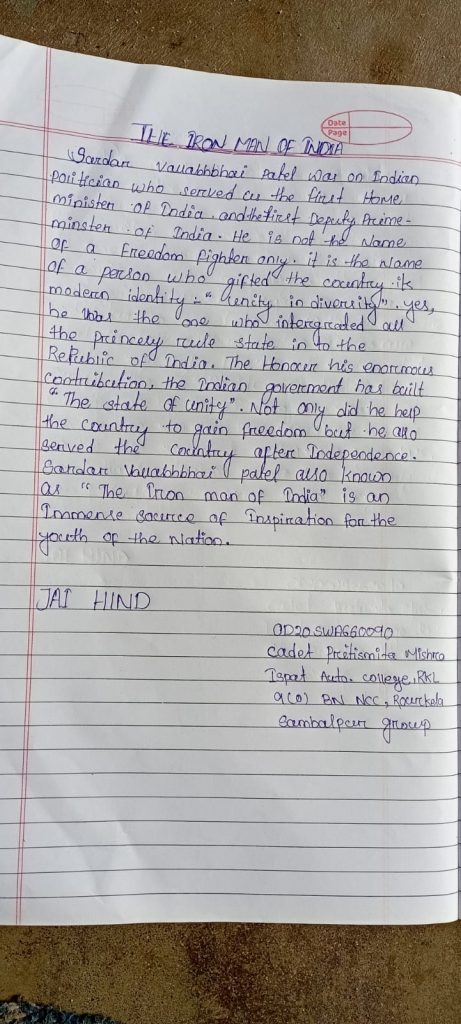 Date
Page
THE IRON MAN OF INDIA
Sardar Vallabhbhai Patel was an Indian
politician who served as the first Home
minister of India and the first Deputy Prime-
minster of India. He is not the Name
of a Freedom fighter only. it is the Name
of a person who gifted the country its
modern identity - "Uenity in diversity". Yes,
he was the one who intergrated all
the princely rule state in to the
Republic of India. The Honour his enormous
contribution, the Indian goverment has built
"The state of unity". Not only did he help
the country to gain freedom but he also
served the country after Independence.
Sardar Vallabhbhai patel also known
as "The Iron man of India" is an
Immense source of Inspiration for the
youth of the Nation.
JAI HIND
OD20SWA660090
Cadet Pritismita Mishra
Ispat Auto. college, RKL
9(O) BN NCC, Rourkela
Sambalpur group